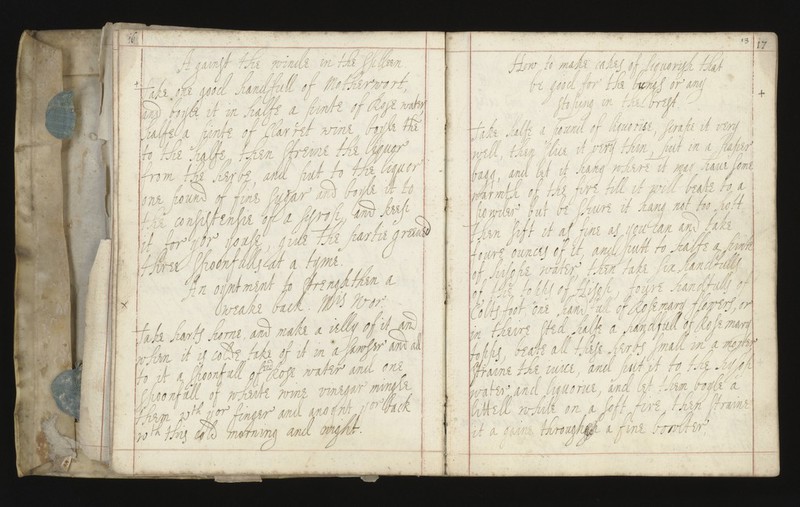 16
Against the winde in the Spleen
Take one good handfull of Motherwort,
and boyle it in halfe a pinte of Rose water,
halfe a pinte of Claret wine, boyle the
to the halfe, then streine the liquor
from the herbe, and put to the liquor
one pound of fine sugar and boyle it to
the consistensie of a sirop, and keep
it for yor use, give the partie greived
three spoonfulls at a tyme.
An oyntment to strengthen a
weake back. Mrs Wor:
Take harts horne and make a ielly of it and
when it is cold take of it in a sawser and ad
to it a spoonfull of Rose water and one
spoonfull of white wine vinegar mingle
them wth yor finger and anoynt yor back
wth this cold morning and night.
13 17
How to make cakes of liquorish that
be good for the lungs or any
stoping in the brest.
Take halfe a pound of liquorise, scrape it very
well, then slice it very thin, put in a paper
bagg, and let it hang where it may have some
warmth of the fire till it will beate to a
powder but be shure it hang not too hott
then sift it as fine as you can and take
foure ounces of it, and putt to halfe a pinte
of hysope water then take six handfulls
of the topps of Hisop, foure handfulls of
Colts foot, one handfull of Rosemary flowers, or
in theire sted halfe a handfull of Rosemary
topps, beate all these herbs small in a morter
straine the iuice, and put it to the hysop
water and liquorise, and let them boyle a
littell while on a soft fire, then straine
it a gaine through a fine bowlter